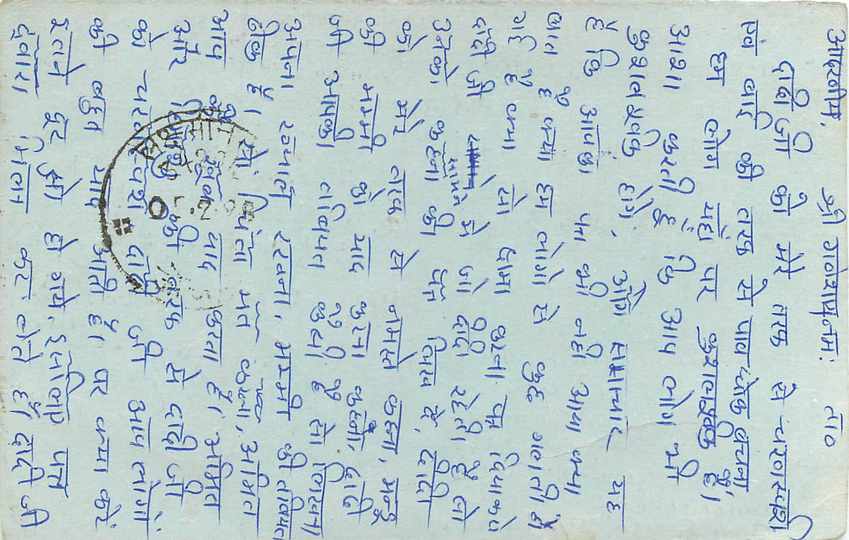 आदरणीय, श्री गणेशायनमः ता०
दादी जी को मेरे तरफ से चरणस्पर्श
एवं भाई की तरफ से पाव
हम लोग यहाँ पर कुशलपूर्वक है।
आशा करती हूँ कि आप लोग भी
कुशलपूर्वक होंगे, आगे समाचार यह
है कि आपका पत्र भी नहीं आया क्या
बात है क्या हम लोगों से कुछ गलती हो
गई है क्या तो क्षमा करना पत्र
दादी जी सामने में जो दीदी रहती है तो
उनको कहना की पत्र लिख दे, दादी
को मेरे तरफ से नमस्ते कहना,
की मम्मी को याद करना दादी
जी आपकी तबियत कैसी है सो लिखना
अपना ख्याल रखना, मम्मी की तबियत
ठीक है। सो चिंता मत करना, अमित
आप को याद करता है। अमित
और की तरफ से दादी जी
को चरणस्पर्श दादी जी आप लोगों
की बहुत याद आती है। पर क्या करे
इतने दूर हो गये, इसलिए पत्र
द्वारा मिलन कर लेते हैं। दादी जी